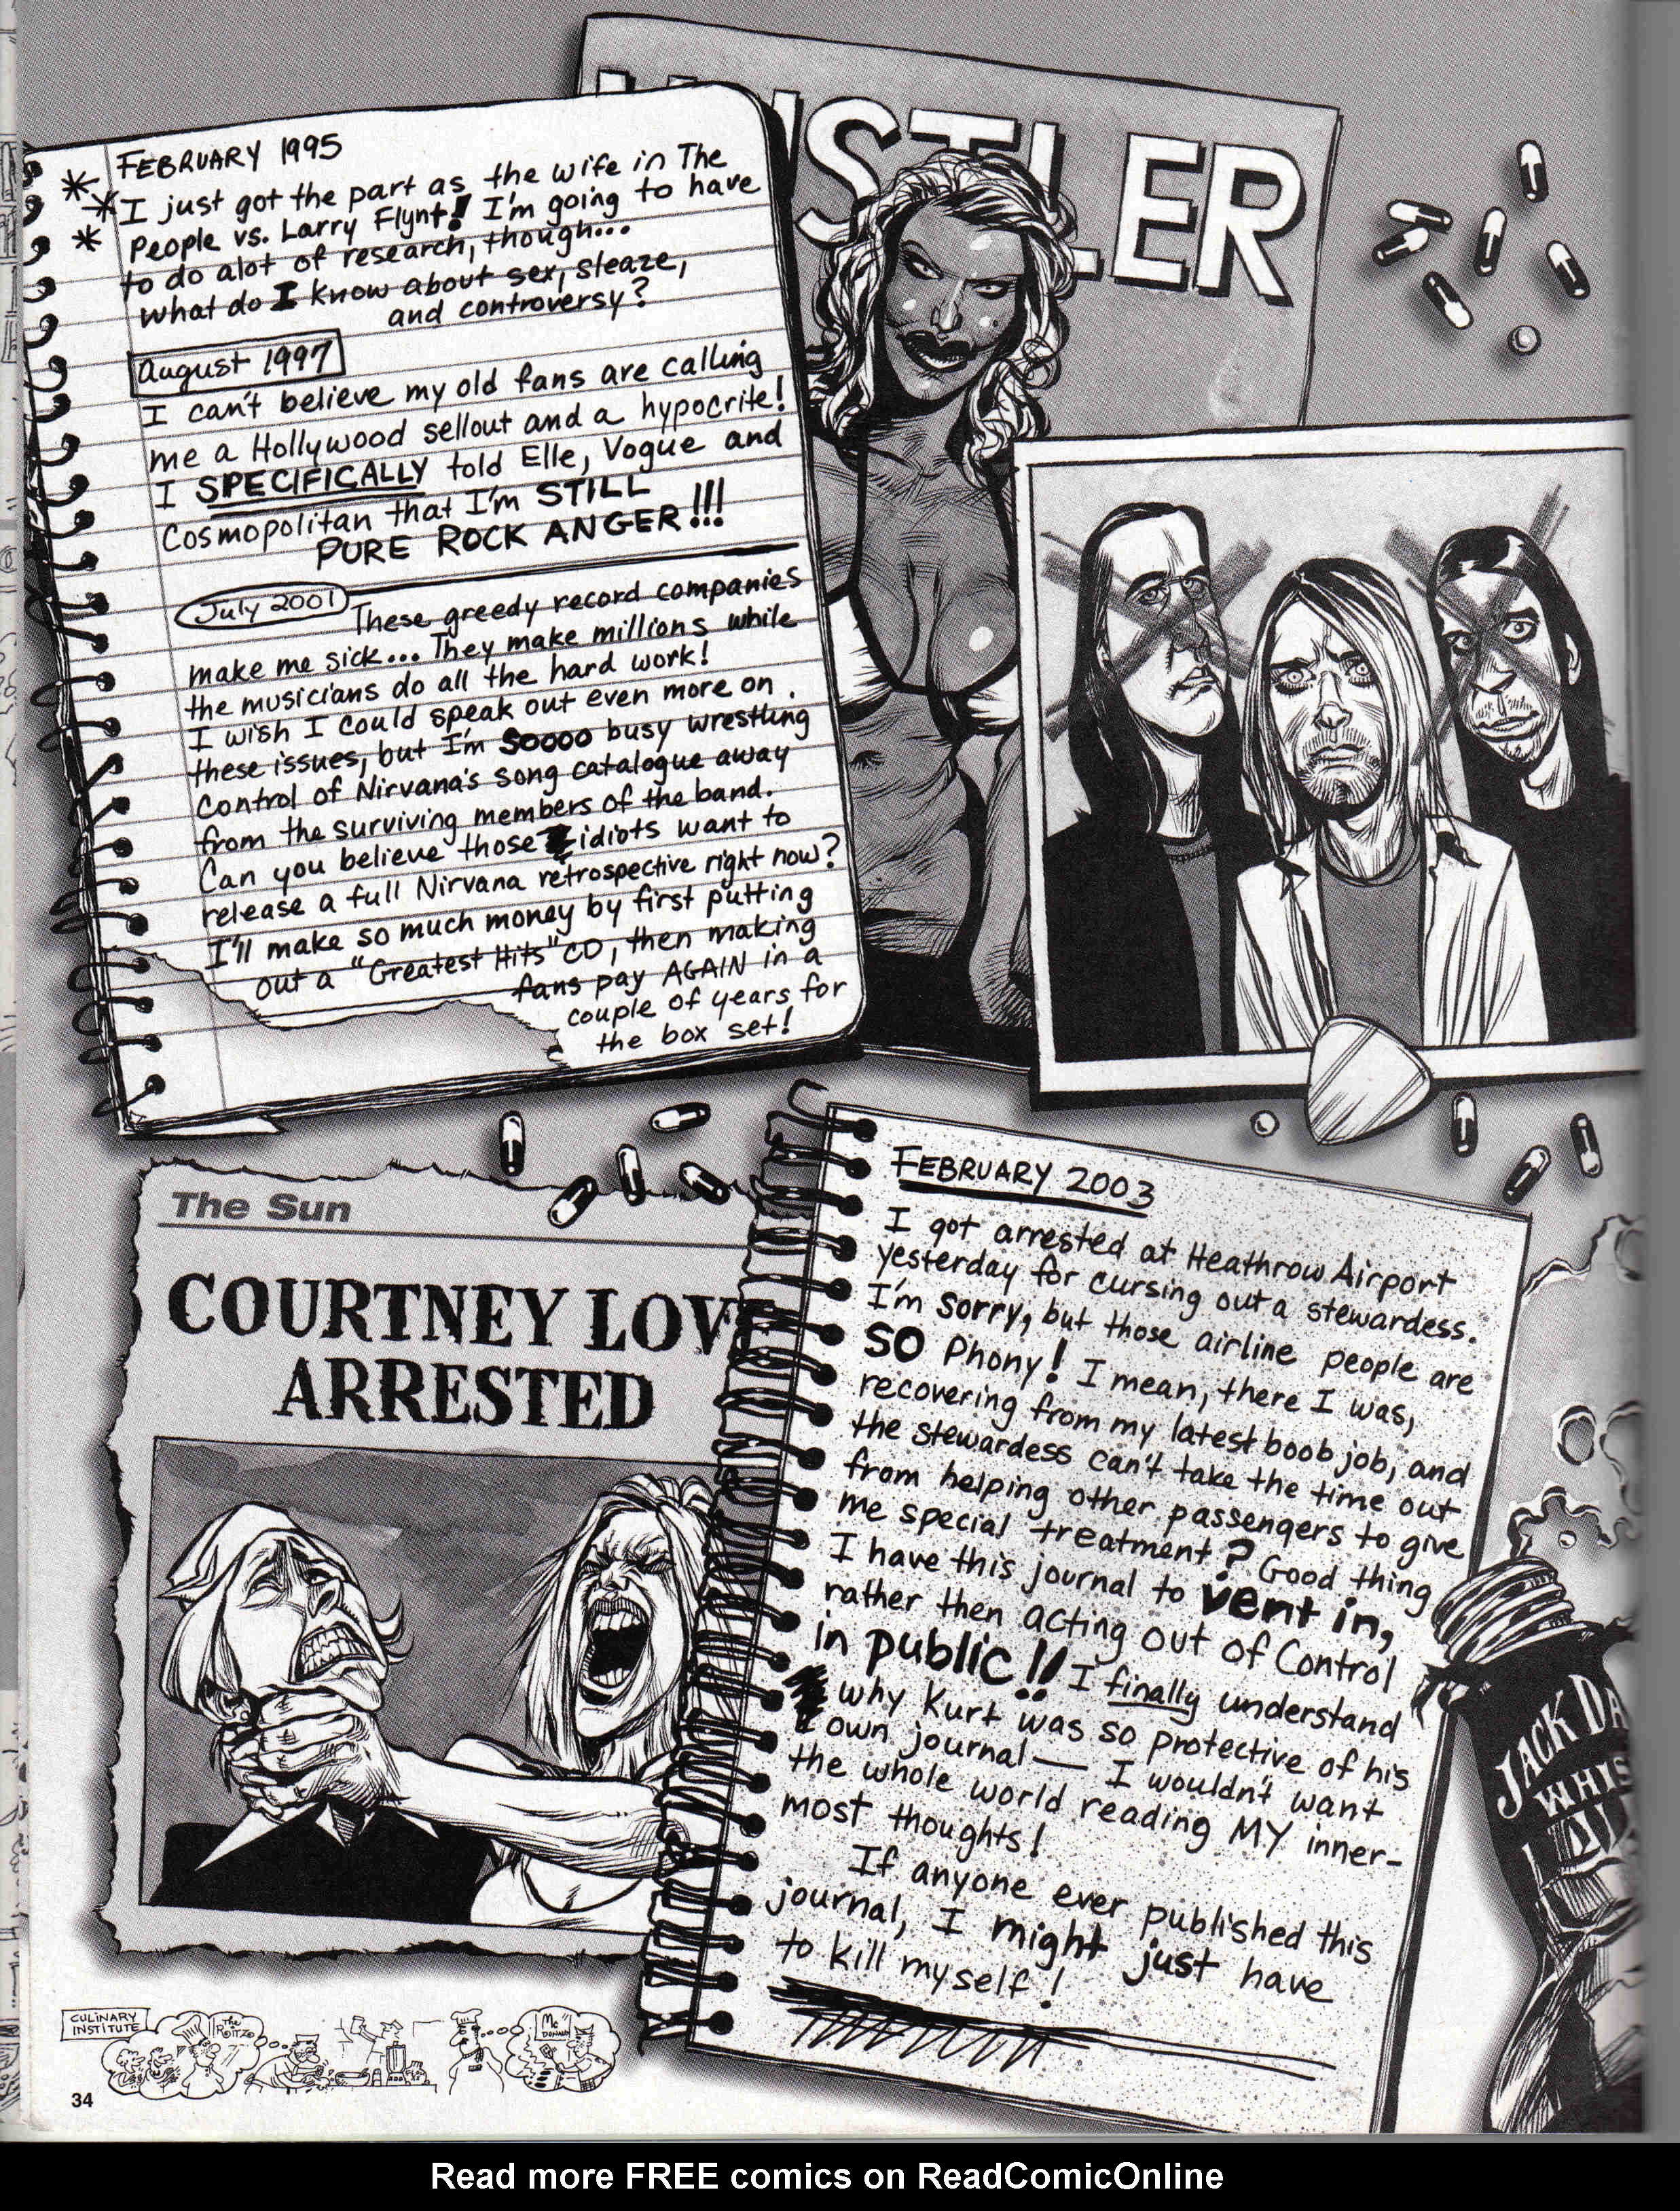 HUSTLER
FEBRUARY 1995
I just got the part as the wife in The
People vs. Larry Flynt! I'm going to have
to do alot of research, though...
what do I know about sex, sleaze,
and controversy?
August 1997
I can't believe my old fans are calling
me a Hollywood sellout and a hypocrite!
I SPECIFICALLY told Elle, Vogue and
Cosmopolitan that I'm STILL
PURE ROCK ANGER!!!
July 2001
These greedy record companies
make me sick... They make millions while
the musicians do all the hard work!
I wish I could speak out even more on
these issues, but I'm SOOOO busy wrestling
control of Nirvana's song catalogue away
from the surviving members of the band.
Can you believe those idiots want to
release a full Nirvana retrospective right now?
I'll make so much money by first putting
out a "Greatest Hits" CD, then making
fans pay AGAIN in a
couple of years for
the box set!
The Sun
COURTNEY LOVE
ARRESTED
FEBRUARY 2003
I got arrested at Heathrow Airport
yesterday for cursing out a stewardess.
I'm sorry, but those airline people are
SO Phony! I mean, there I was,
recovering from my latest boob job, and
the stewardess can't take the time out
from helping other passengers to give
me special treatment? Good thing
I have this journal to vent in,
rather then acting out of Control
in public!! I finally understand
why Kurt was so protective of his
own journal— I wouldn't want
the whole world reading MY inner-
most thoughts!
If anyone ever published this
journal, I might just have
to kill myself!
JACK DA
WHIS
CULINARY
INSTITUTE
The
RITZ
Mc
DONALD
34
Read more FREE comics on ReadComicOnline